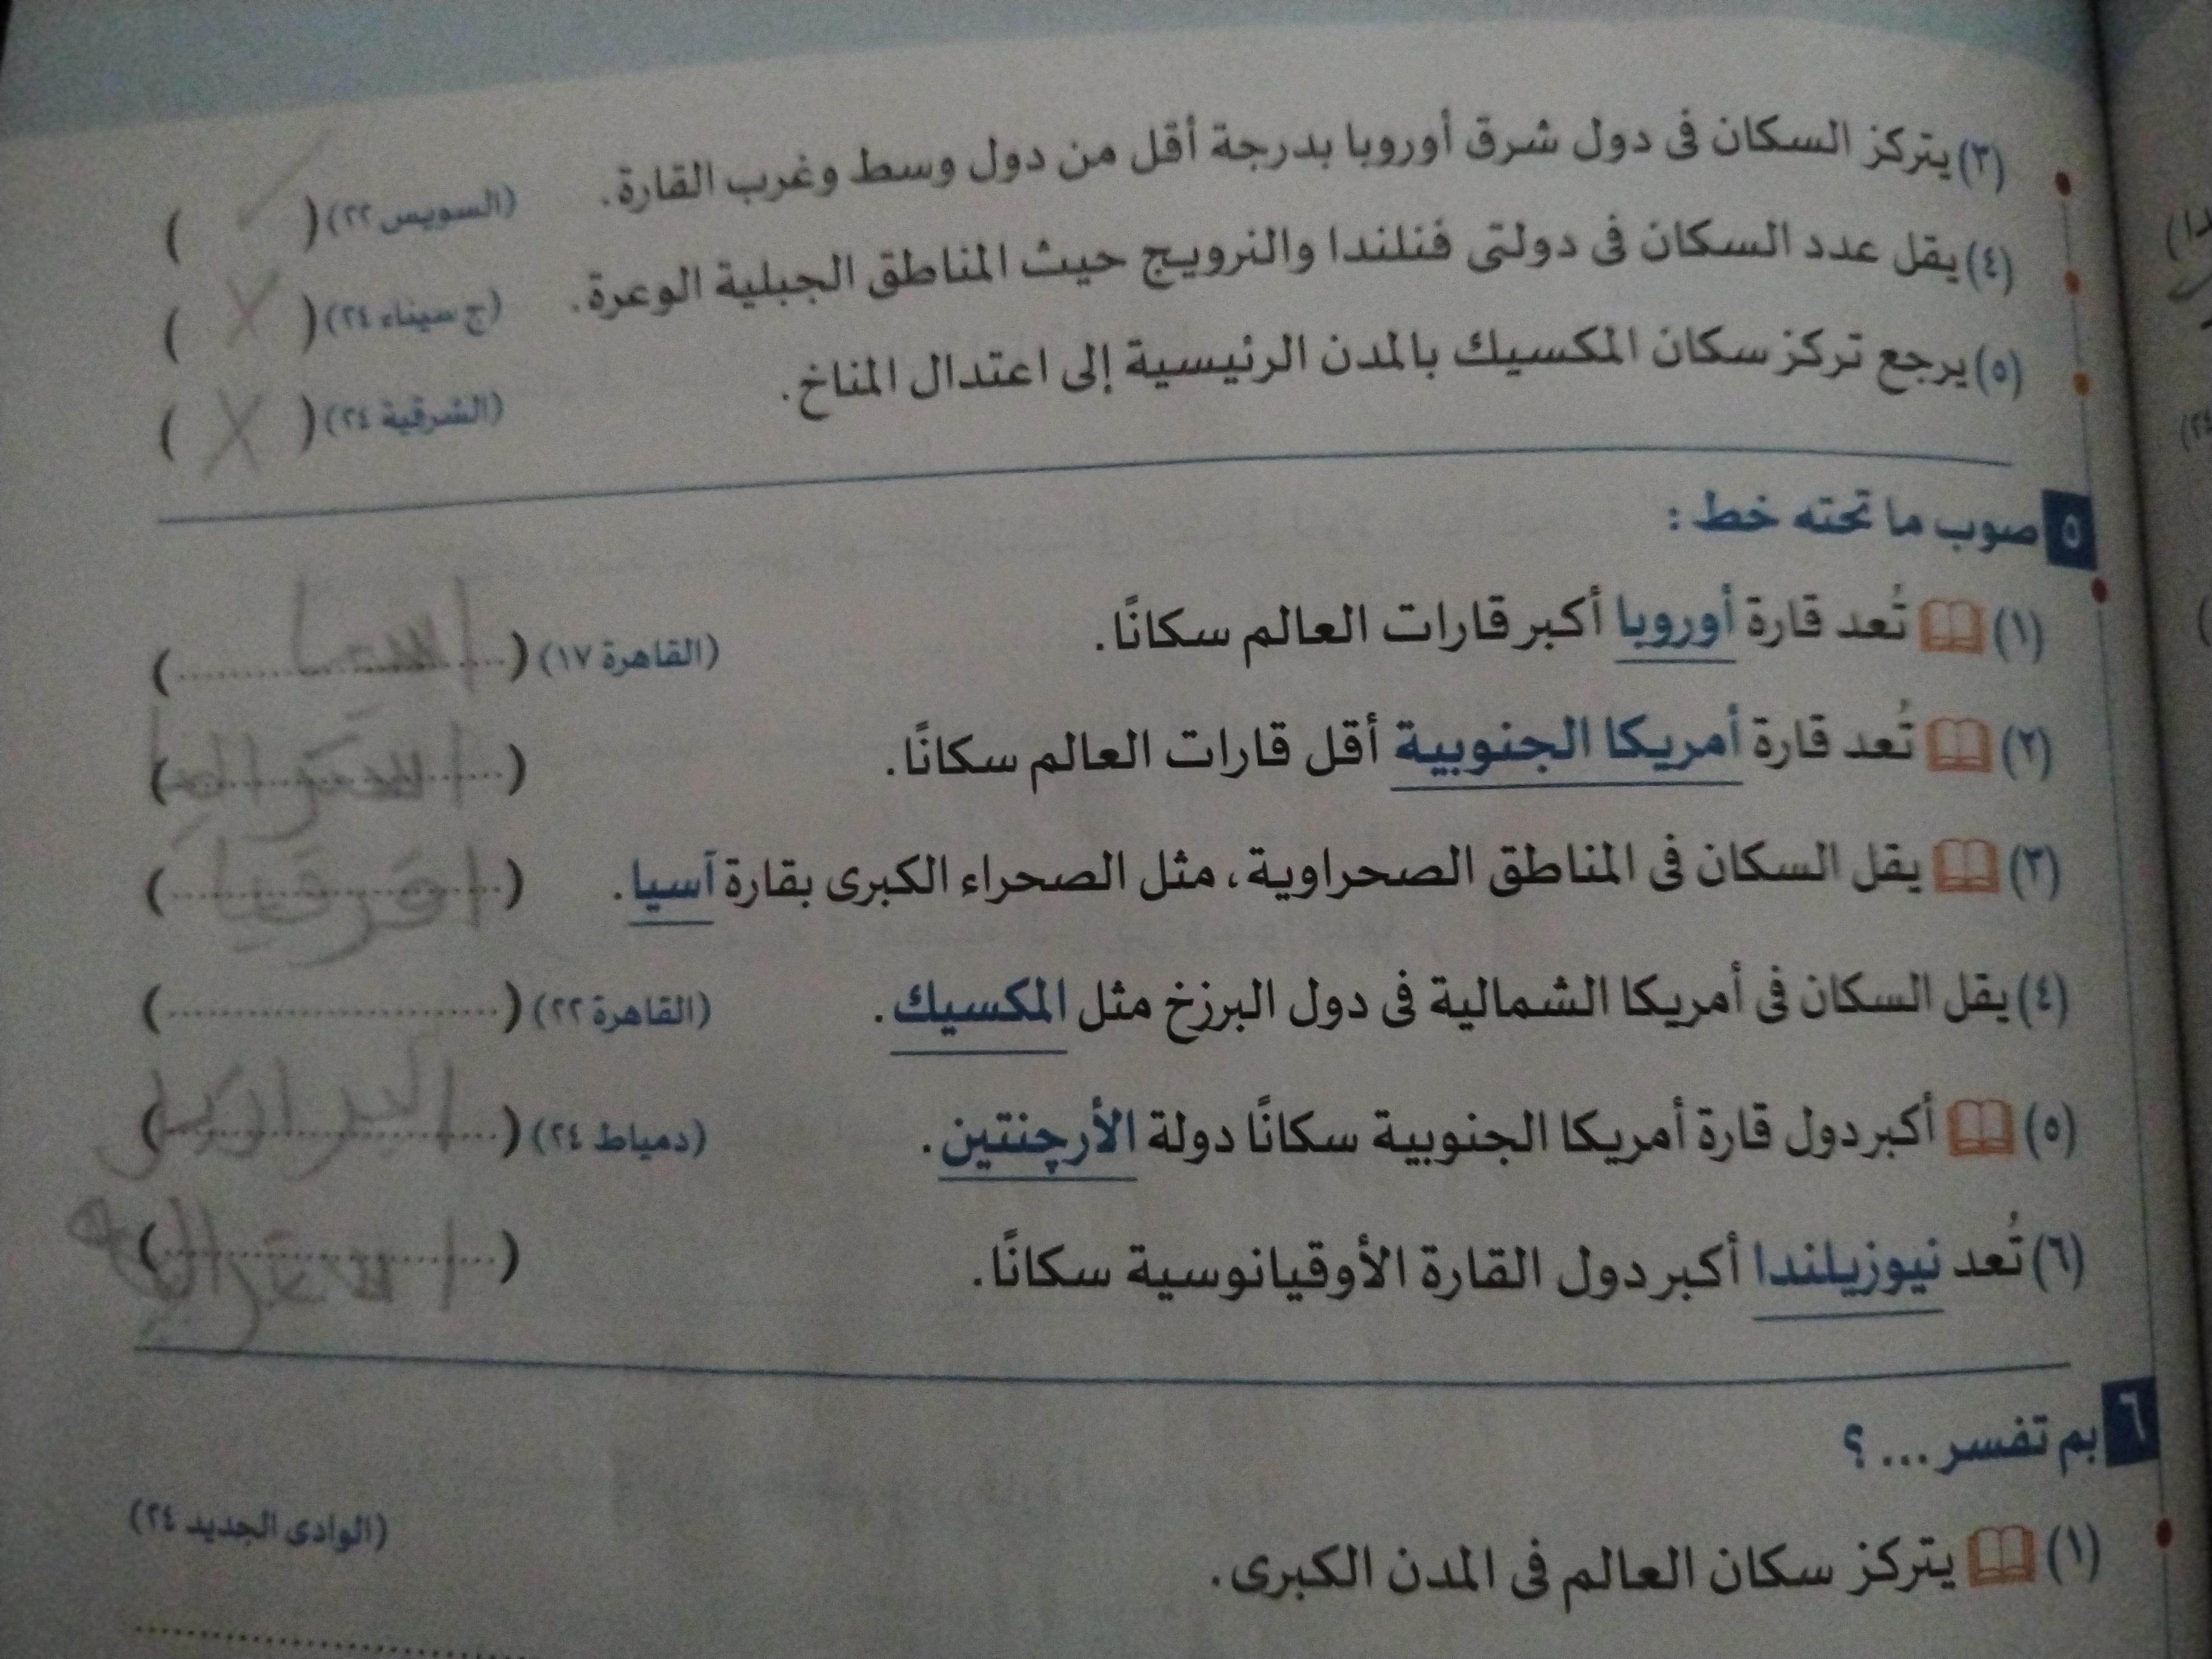 (٣) يتركز السكان فى دول شرق أوروبا بدرجة أقل من دول وسط وغرب القارة. (السويس ٢٢) ( )
(٤) يقل عدد السكان فى دولتى فنلندا والنرويج حيث المناطق الجبلية الوعرة. (ج سيناء ٢٤) ( X )
(٥) يرجع تركز سكان المكسيك بالمدن الرئيسية إلى اعتدال المناخ. (الشرقية ٢٤) ( X )
٥ صوب ما تحته خط :
(١) تُعد قارة أوروبا أكبر قارات العالم سكانًا. (القاهرة ١٧) (اسيا)
(٢) تُعد قارة أمريكا الجنوبية أقل قارات العالم سكانًا. ( )
(٣) يقل السكان فى المناطق الصحراوية، مثل الصحراء الكبرى بقارة آسيا. (افرقيا)
(٤) يقل السكان فى أمريكا الشمالية فى دول البرزخ مثل المكسيك. (القاهرة ٢٢) ( )
(٥) أكبر دول قارة أمريكا الجنوبية سكانًا دولة الأرچنتين. (دمياط ٢٤) (البرازيل)
(٦) تُعد نيوزيلندا أكبر دول القارة الأوقيانوسية سكانًا. ( )
٦ بم تفسر ... ؟
(١) يتركز سكان العالم فى المدن الكبرى. (الوادى الجديد ٢٤)